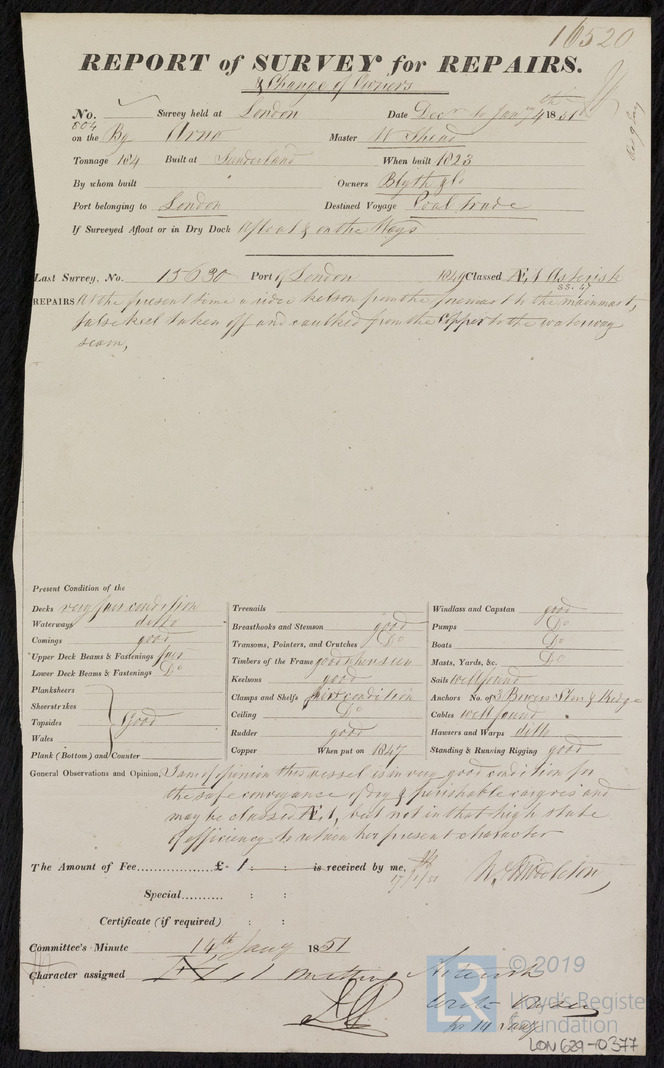 16520
REPORT of SURVEY for REPAIRS.
& Change of Owners
No. Survey held at London Date Decr to Jany 4th 1851
804
on the Bg Arno Master W Shead
Tonnage 184 Built at Sunderland When built 1823
By whom built Owners Blyth & Co
Port belonging to London Destined Voyage Coal trade
If Surveyed Afloat or in Dry Dock Afloat & on the Ways
Last Survey, No. 15630 Port of London 1849 Classed Æ.1 Asterisk
REPAIRS At the present time a rider kelson from the foremast to the mainmast,
false keel taken off and caulked from the copper to the waterway
seam,
Present Condition of the
Decks very fair condition
Waterways ditto
Comings good
Upper Deck Beams & Fastenings fair
Lower Deck Beams & Fastenings Do
Planksheers
Sheerstrakes
Topsides good
Wales
Plank (Bottom) and Counter
Treenails
Breasthooks and Stemson good
Transoms, Pointers, and Crutches Do
Timbers of the Frame good when seen
Keelsons good
Clamps and Shelfs fair condition
Ceiling Do
Rudder good
Copper When put on 1847
Windlass and Capstan good
Pumps Do
Boats Do
Masts, Yards, &c. Do
Sails well found
Anchors No. of 3 Bowers Stm & Kedge
Cables well found
Hawsers and Warps ditto
Standing & Running Rigging good
General Observations and Opinion, I am of opinion this vessel is in very good condition for
the safe conveyance of dry & perishable cargoes and
may be classed Æ.1, but not in that high state
of efficiency to retain her present character
The Amount of Fee £ - 1 : : is received by me,
17/1/51 W. Middleton,
Special : :
Certificate (if required) : :
Committee's Minute 14th Jany 1851
Character assigned Æ 1 Asterisk
© 2019
LR
Lloyd's Register
Foundation
for 14 Jany
LON 629-0377